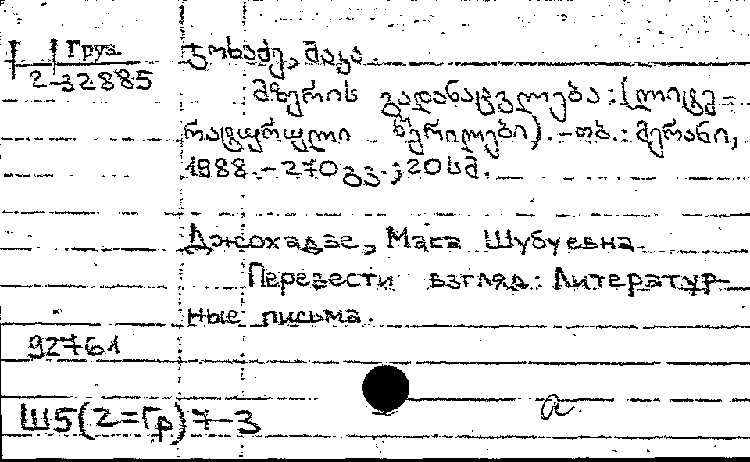 Груз.
2-32885
ჯოხაძე, მაკა.
მზერის გადანაცვლება : (ლიტე-
რატურული წერილები). - თბ. : მერანი,
1988. - 270 გვ. ; 20 სმ.
Джохадзе, Мака Шубуевна.
Перевести взгляд : Литератур-
ные письма.
92761
Ш5(2=Гр)7-3
a